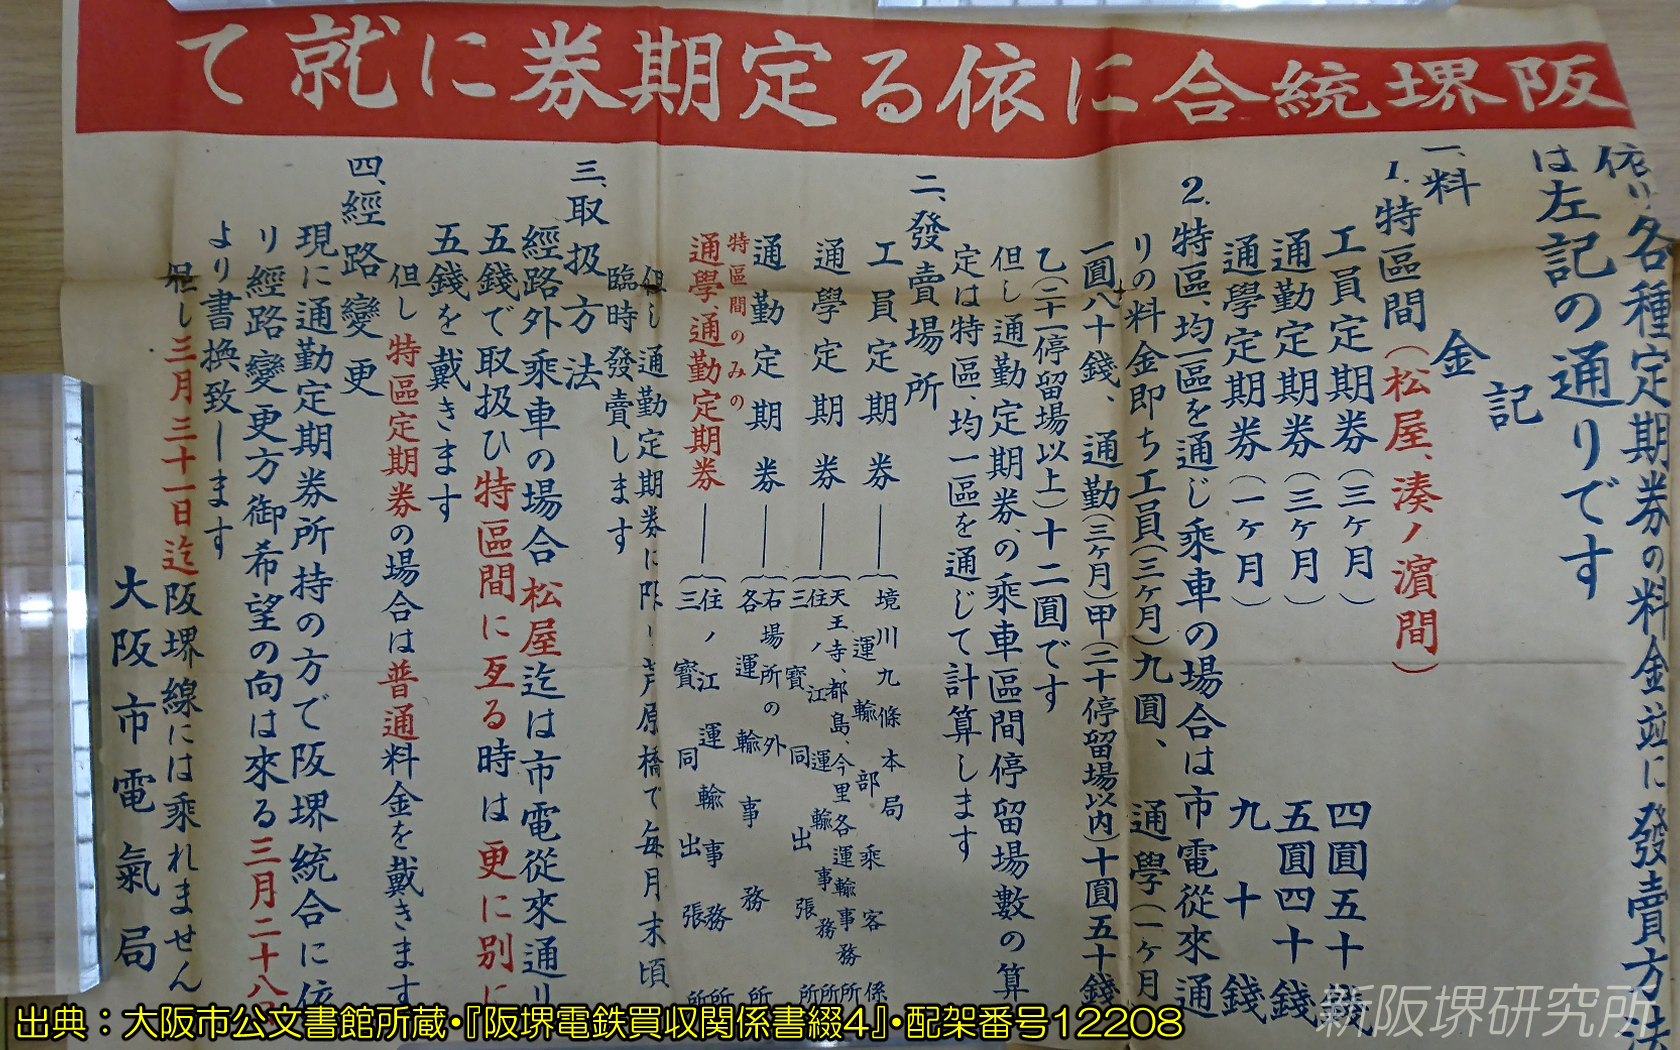 阪堺統合に依る定期券に就て
依り各種定期券の料金並に發賣方法
は左記の通りです
記
一、料金
1.特區間(松屋、湊ノ濱間)
工員定期券(三ヶ月) 四圓五十錢
通勤定期券(三ヶ月) 五圓四十錢
通學定期券(一ヶ月) 九十錢
2.特區、均一區を通じ乘車の場合は市電從來通
りの料金即ち工員(三ヶ月)九圓、通學(一ヶ月
一圓八十錢、通勤(三ヶ月)甲(二十停留場以内)十圓五十錢
乙(二十一停留場以上)十二圓です
但し通勤定期券、の乘車區間停留場數の算
定は特區、均一區を通じて計算します
二、發賣場所
工員定期券――境川九條本局
運輸部乘客係
通學定期券――天王寺、都島、今里各運輸事務所
住ノ江運輸事務所
三寶同出張所
通勤定期券――右場所の外
各運輸事務所
特區間のみの
通學、通勤定期券――住ノ江運輸事務所
三寶同出張所
但し通勤定期券に限り芦原橋で毎月末頃
臨時發賣します
三、取扱方法
經路外乘車の場合松屋迄は市電從來通り
五錢で取扱ひ特區間に亙る時は更に別に
五錢を戴きます
但し特區定期券の場合は普通料金を戴きます
四、經路變更
現に通勤定期券所持の方で阪堺統合に依
り經路變更方御希望の向は來る三月二十八日
より書換致します
但し三月三十一日迄阪堺線には乘れません
大阪市電氣局
出典：大阪市公文書館所蔵・『阪堺電鉄買収関係書綴4』・配架番号12208
新阪堺研究所